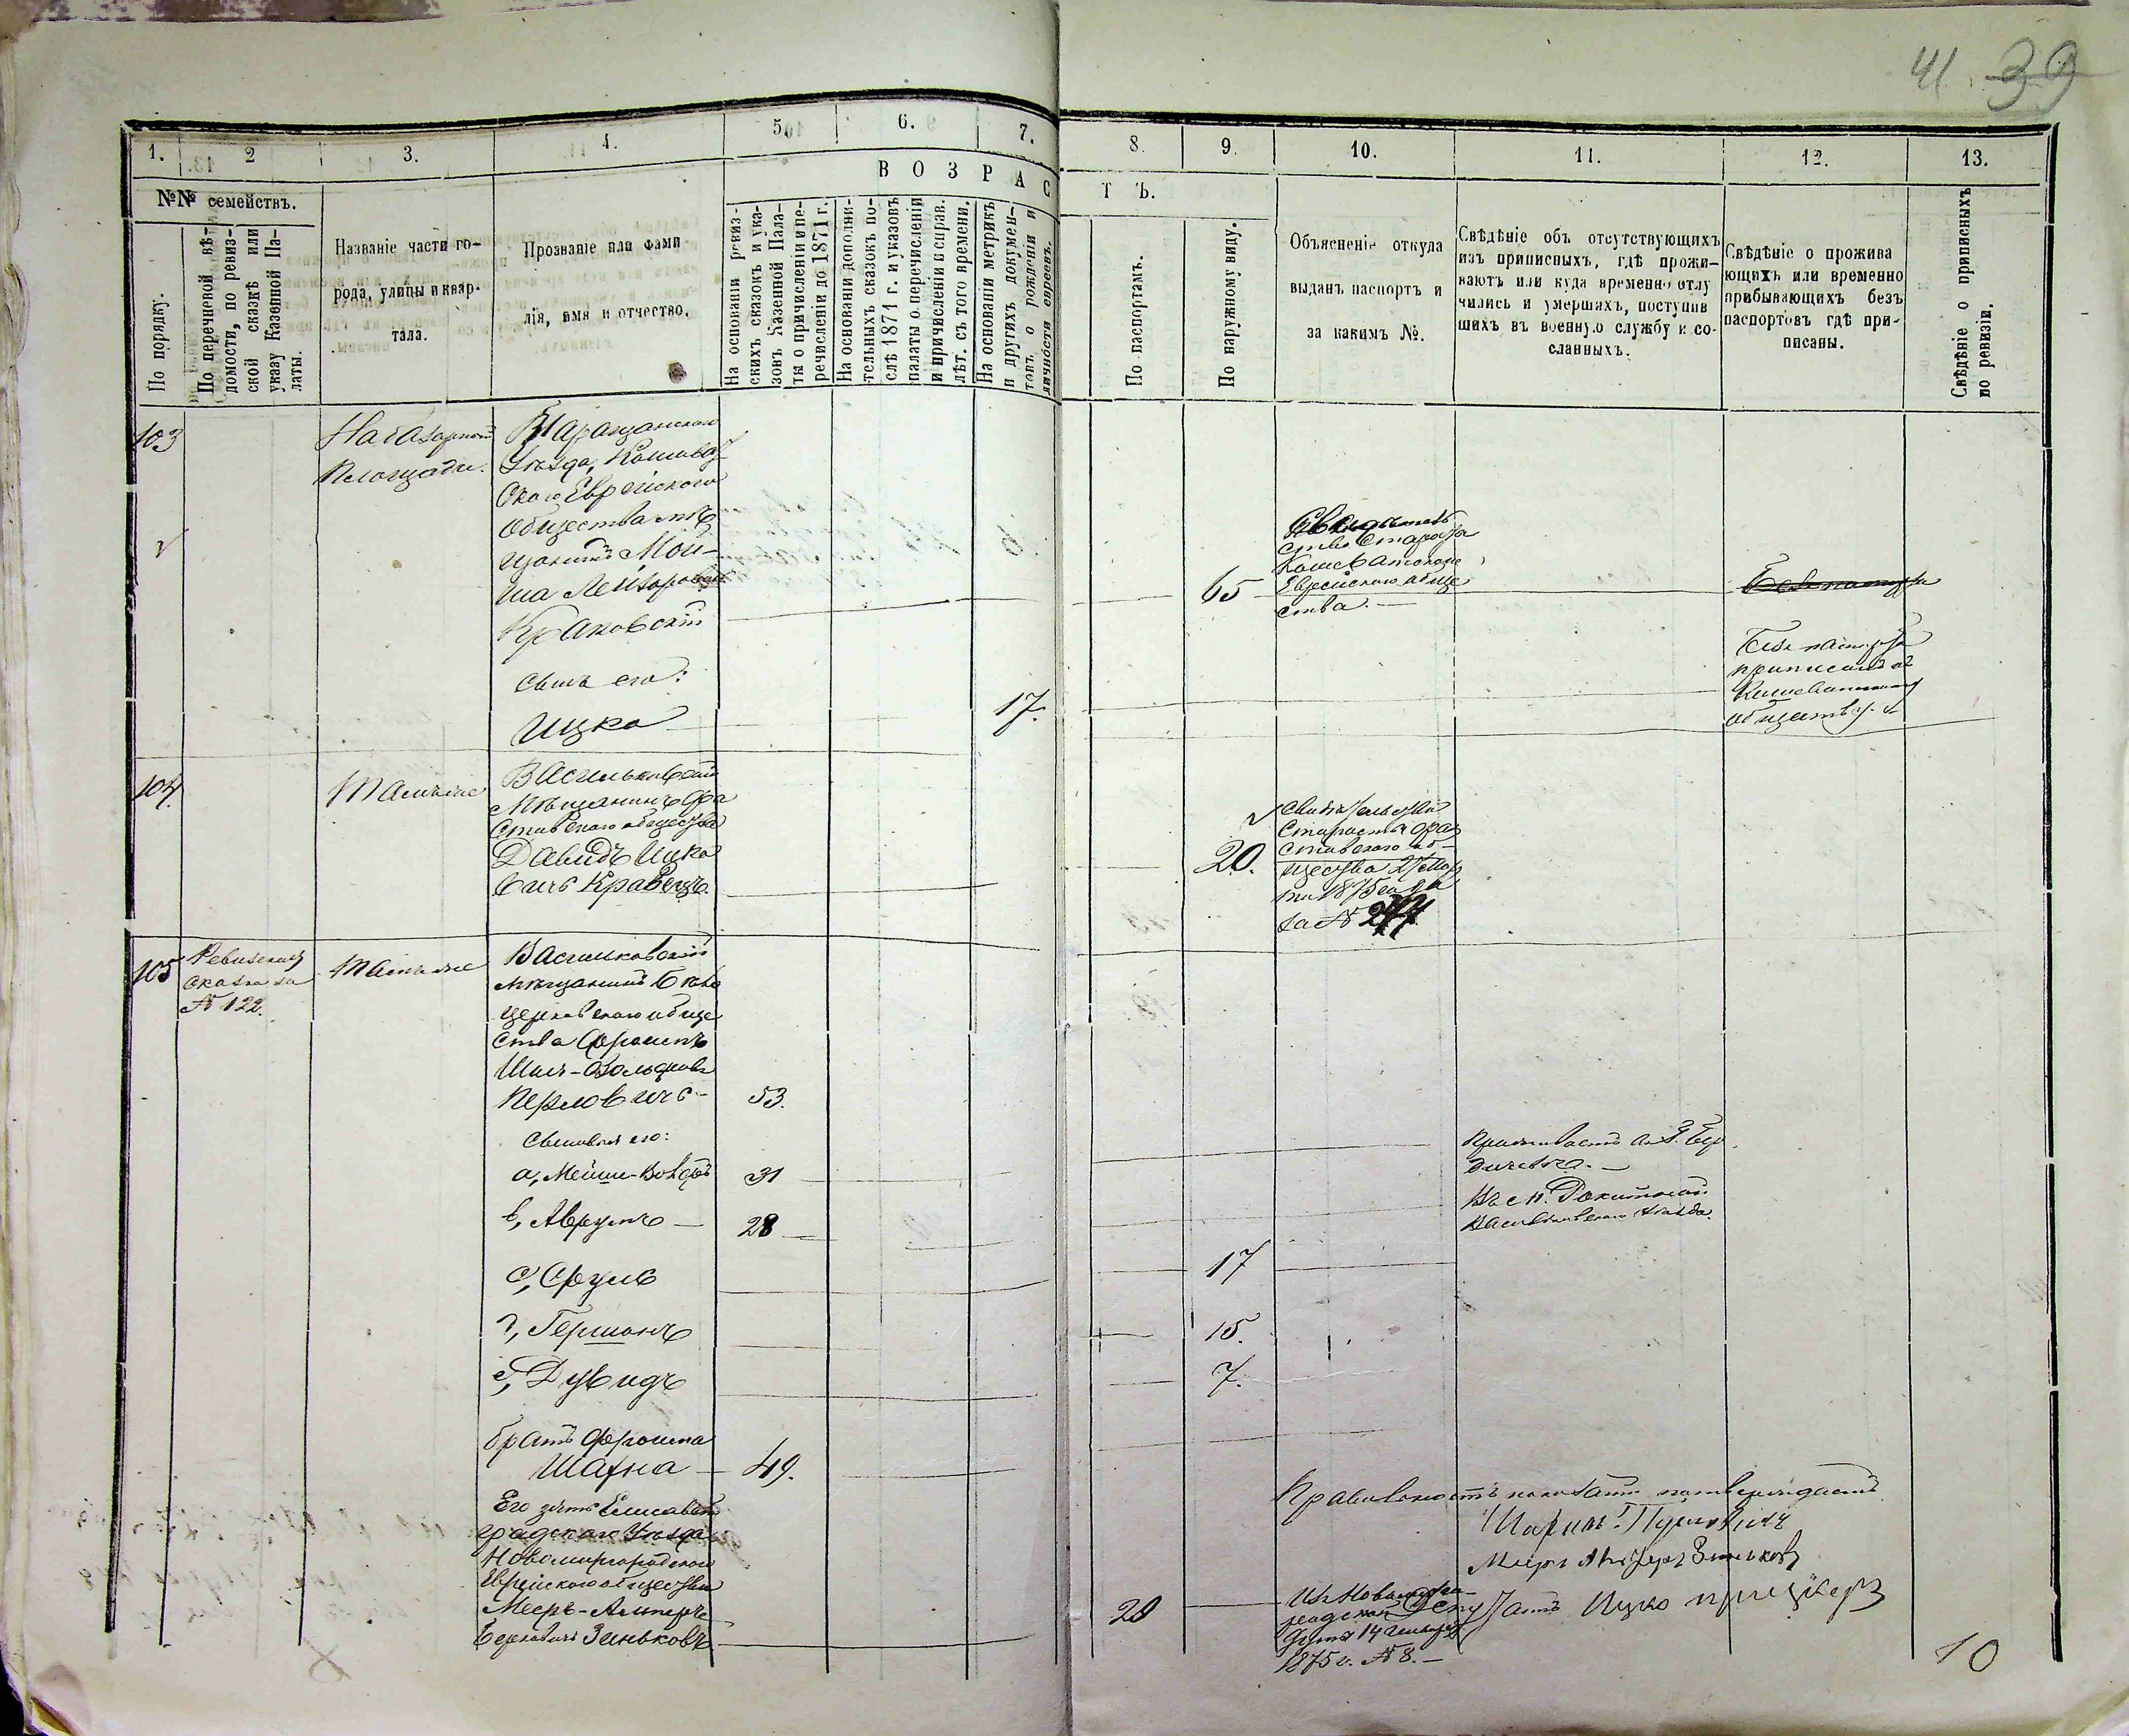 41 39
1. 2 3. 4. 5. 6. 7. 8. 9. 10. 11. 12. 13.
№№ семействъ.
По порядку.
По перечневой вѣ-
домости, по ревиз-
ской сказкѣ или
указу Казенной Па-
латы.
Названіе части го-
рода, улицы и квар-
тала.
Прозваніе или фами-
лія, имя и отчество.
ВОЗРАСТЪ.
На основаніи ревиз-
скихъ сказокъ и ука-
зовъ Казенной Пала-
ты о причисленіи и пе-
речисленіи до 1871 г.
На основаніи дополни-
тельныхъ сказокъ по-
слѣ 1871 г. и указовъ
палаты о перечисленіи
и причисленіи и справ.
лѣт. съ того времени.
На основаніи метрикъ
и другихъ докумен-
товъ о рожденіи и
личности евреевъ.
По паспортамъ.
По наружному виду.
Объясненіе откуда
выданъ паспортъ и
за какимъ №.
Свѣдѣніе объ отсутствующихъ
изъ приписныхъ, гдѣ прожи-
ваютъ или куда временно отлу
чились и умершихъ, поступив
шихъ въ военную службу и со-
сланныхъ.
Свѣдѣніе о прожива
ющихъ или временно
прибывающихъ безъ
паспортовъ гдѣ при-
писаны.
Свѣдѣніе о приписныхъ
по ревизіи.
103
На базарной
площади.
Таращанскаго
Уѣзда, Кошеват
скаго Еврейскаго
общества мѣ
щанинъ Мой-
ша Лейзоровичъ
Краковскій
65
Свидѣтель
ство Старосты
Кошеватскаго
Еврейскаго обще
ства. —
Безъ паспорта
сынъ его:
Ицко
17.
Безъ паспорта
приписанъ къ
Кошеватскому
обществу.
104
Тамъ же
Васильковскій
Мѣщанинъ Фа
стовскаго общества
Давидъ Ицко
вичъ Кравецъ.
20.
Свидѣтельство
Старосты Фа
стовскаго об-
щества 27 Мар
та 1875 года
за №
105
Ревизская
сказка за
№ 122.
Тамъ же
Васильковскій
мѣщанинъ Бѣло
церковскаго обще
ства Фроимъ
Шал-Вольфовъ
Перловичъ
53.
Сыновья его:
а, Мейши-Вольфъ
31
Проживаетъ въ Г. Бер
дичевѣ. —
в, Аврумъ —
28
Въ м. Рокитной
Васильковскаго Уѣзда.
с, Сруль
17
г, Гершонъ
15.
е, Дувидъ
7.
братъ Фроима
Шахна —
49.
Его зять Елисавет
градскаго Уѣзда
Новомиргородскаго
Еврейскаго общества
Мееръ-Алтеръ
Берковичъ Зиньковъ
20
Изъ Новомирго-
родской
Думы 14 Января
1875 г. № 8. —
Правильность показанія подтверждаетъ
Депутатъ Ицко
10